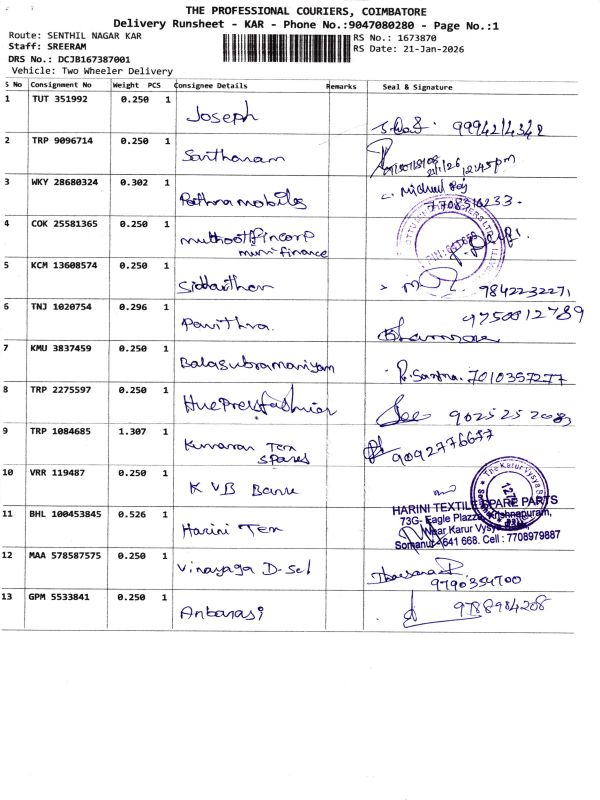 THE PROFESSIONAL COURIERS, COIMBATORE
Delivery Runsheet - KAR - Phone No.:9047080280 - Page No.:1
Route: SENTHIL NAGAR KAR
Staff: SREERAM
DRS No.: DCJB167387001
Vehicle: Two Wheeler Delivery
RS No.: 1673870
RS Date: 21-Jan-2026
S No Consignment No Weight PCS Consignee Details Remarks Seal & Signature
1 TUT 351992 0.250 1 Joseph
2 TRP 9096714 0.250 1 Santhanam 21/1/26 12:45pm
3 WKY 28680324 0.302 1 Pothramobiles
4 COK 25581365 0.250 1 muthoot fincorp
5 KCM 13608574 0.250 1 Siddarthan 9842232271
6 TNJ 1020754 0.296 1 Pavithra 9750812789
7 KMU 3837459 0.250 1 Balasubramaniyam 7010357277
8 TRP 2275597 0.250 1
9 TRP 1084685 1.307 1 Kumaran Tex
Spares
10 VRR 119487 0.250 1 KVB Bank
11 BHL 100453845 0.526 1 Harini Tex
HARINI TEXTILE SPARE PARTS
73G- Eagle Plazza, Krishnapuram,
Near Karur Vysya
Somanur-641 668. Cell : 7708979887
12 MAA 578587575 0.250 1 Vinayaga D-Sel 9790354700
13 GPM 5533841 0.250 1 Anbarasi 9788984208